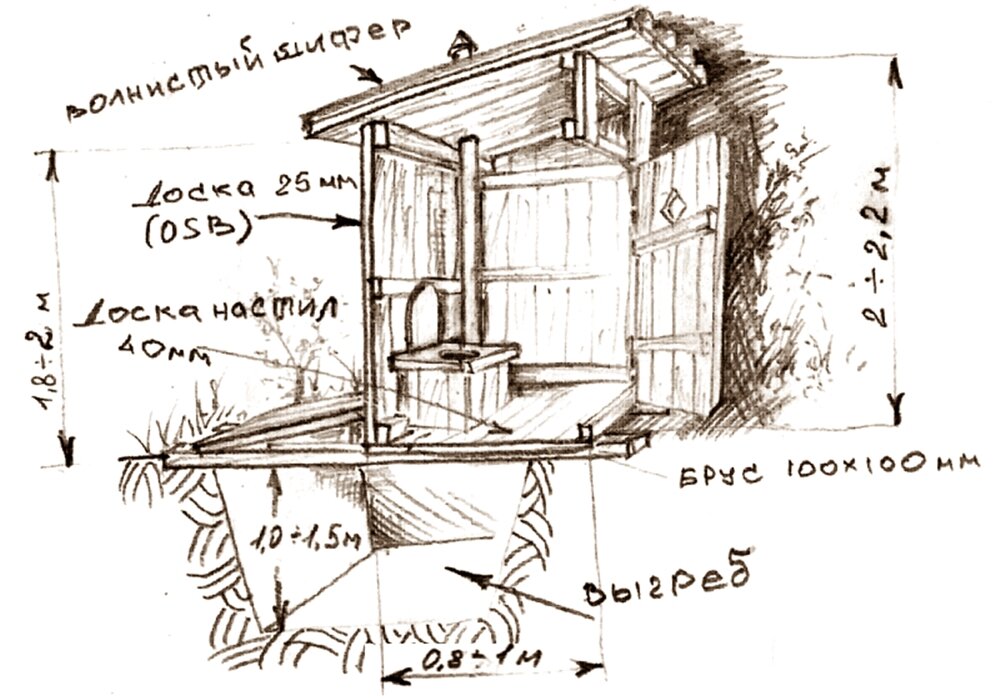 волнистый шифер
Доска 25мм
(OSB)
Доска настил
40мм
1,8÷2 м
2÷2,2 м
БРУС 100х100мм
1,0÷1,5м
выгреб
0,8÷1м